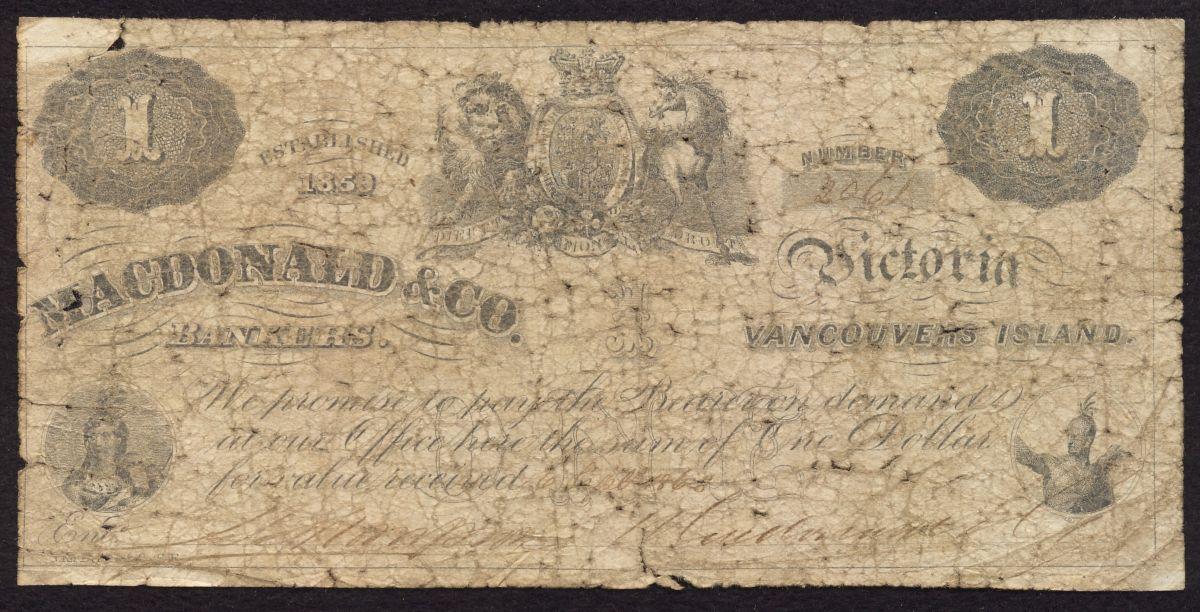 1
1
ESTABLISHED
1859
NUMBER
DIEU ET MON DROIT
MACDONALD & CO.
BANKERS.
Victoria
1
VANCOUVERS ISLAND.
We promise to pay the Bearer on demand
at our Office here the sum of One Dollar
for value received
Ent